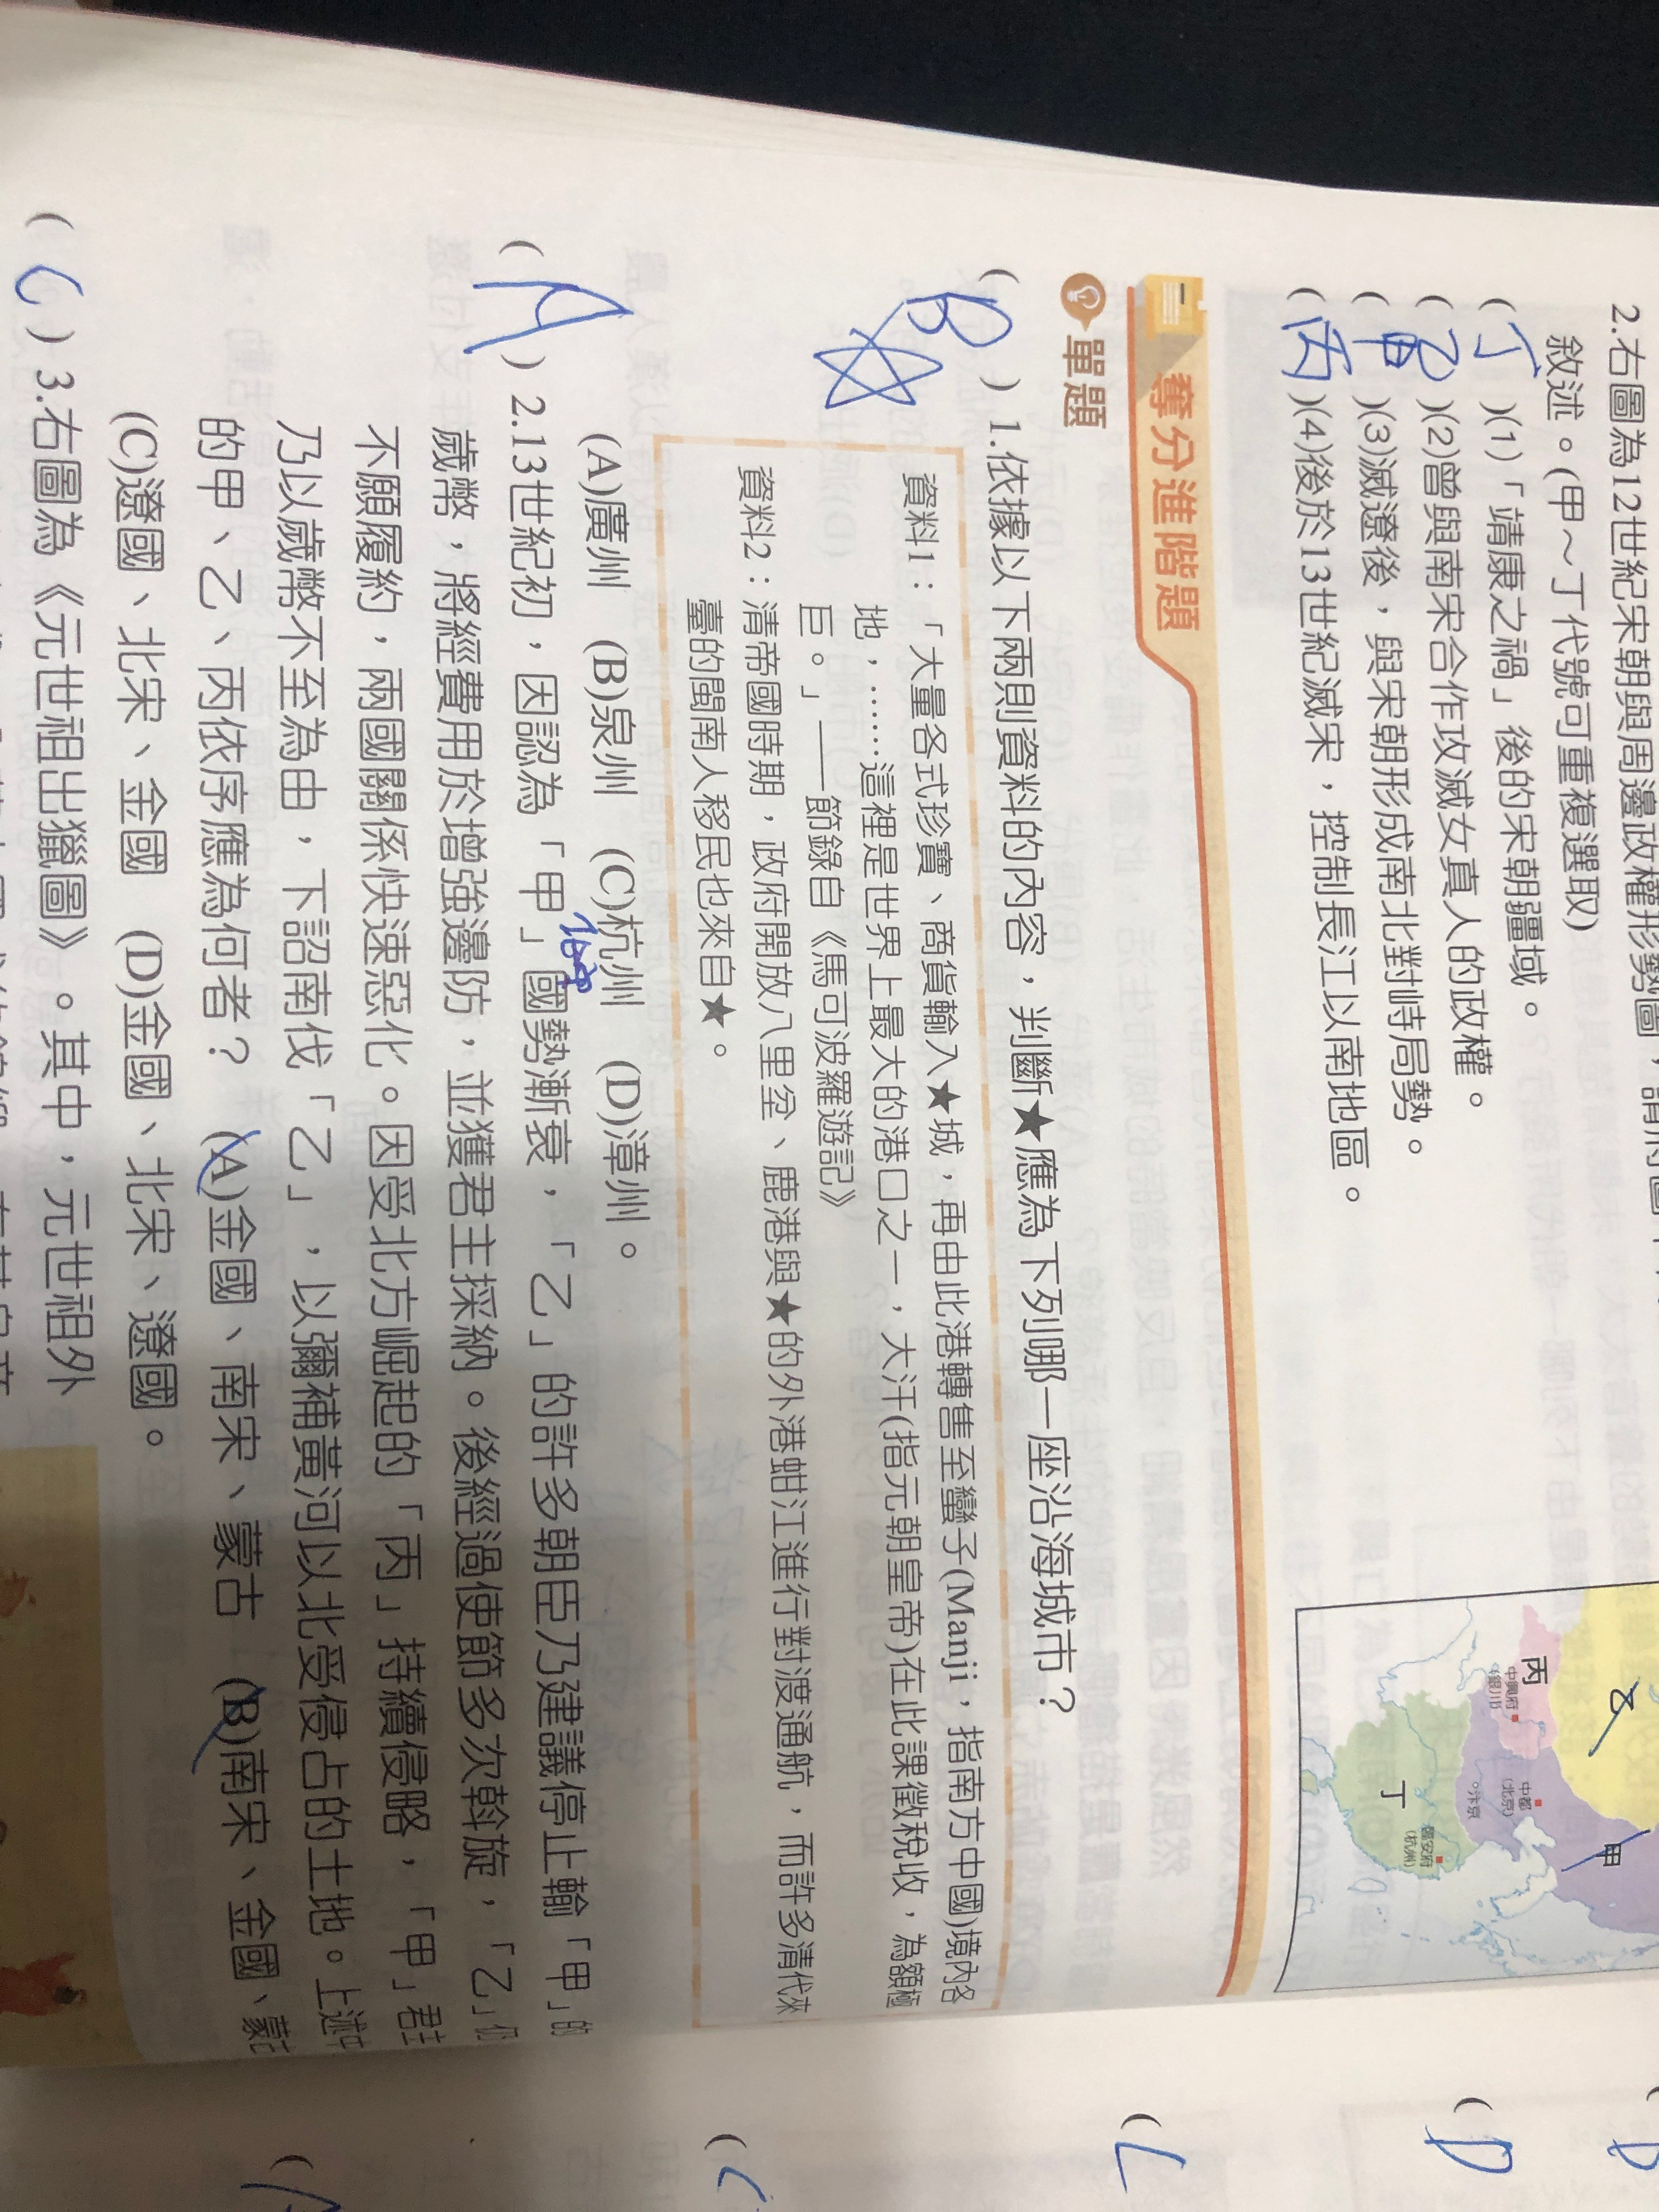 2.右圖為12世紀宋朝與周邊政權形勢圖，請將圖中
敘述。(甲～丁代號可重複選取)
(丁)(1)「靖康之禍」後的宋朝疆域。
(乙)(2)曾與南宋合作攻滅女真人的政權。
(甲)(3)滅遼後，與宋朝形成南北對峙局勢。
(丙)(4)後於13世紀滅宋，控制長江以南地區。
乙
甲
丙
中興府
(銀川)
中都
(北京)
汴京
丁
臨安府
(杭州)
奪分進階題
單題
(B)1.依據以下兩則資料的內容，判斷★應為下列哪一座沿海城市？
資料1：「大量各式珍寶、商貨輸入★城，再由此港轉售至蠻子(Manji，指南方中國)境內各
地，……這裡是世界上最大的港口之一，大汗(指元朝皇帝)在此課徵稅收，為額極
巨。」──節錄自《馬可波羅遊記》
資料2：清帝國時期，政府開放八里坌、鹿港與★的外港蚶江進行對渡通航，而許多清代來
臺的閩南人移民也來自★。
(A)廣州 (B)泉州 (C)杭州 (D)漳州。
(A)2.13世紀初，因認為「甲」國勢漸衰，「乙」的許多朝臣乃建議停止輸「甲」的
歲幣，將經費用於增強邊防，並獲君主採納。後經過使節多次斡旋，「乙」仍
不願履約，兩國關係快速惡化。因受北方崛起的「丙」持續侵略，「甲」君主
乃以歲幣不至為由，下詔南伐「乙」，以彌補黃河以北受侵占的土地。上述中
的甲、乙、丙依序應為何者？ (A)金國、南宋、蒙古 (B)南宋、金國、蒙古
(C)遼國、北宋、金國 (D)金國、北宋、遼國。
(C)3.右圖為《元世祖出獵圖》。其中，元世祖外